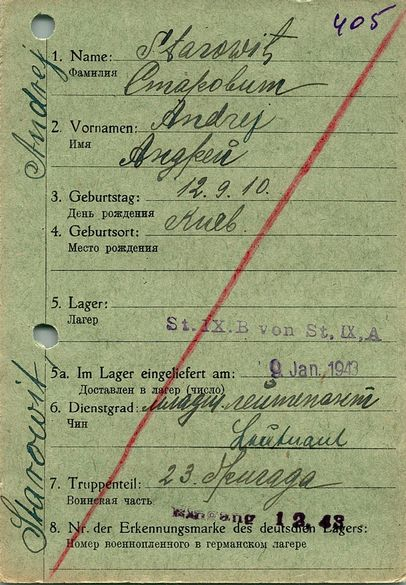 405
Andrej
Starowit
1. Name: Starowit
Фамилия
Старовит
2. Vornamen: Andrej
Имя
Андрей
3. Geburtstag: 12.9.10.
День рождения
4. Geburtsort: Киев.
Место рождения
5. Lager:
Лагер
St.IX.B von St.IX.A
5a. Im Lager eingeliefert am: 9 Jan. 1943
Доставлен в лагер (число)
6. Dienstgrad: лейтенант
Чин
Leutnant
7. Truppenteil: 23. бригада
Воинская часть
1 2. 43
8. Nr. der Erkennungsmarke des deutschen Lagers:
Номер военнопленного в германском лагере